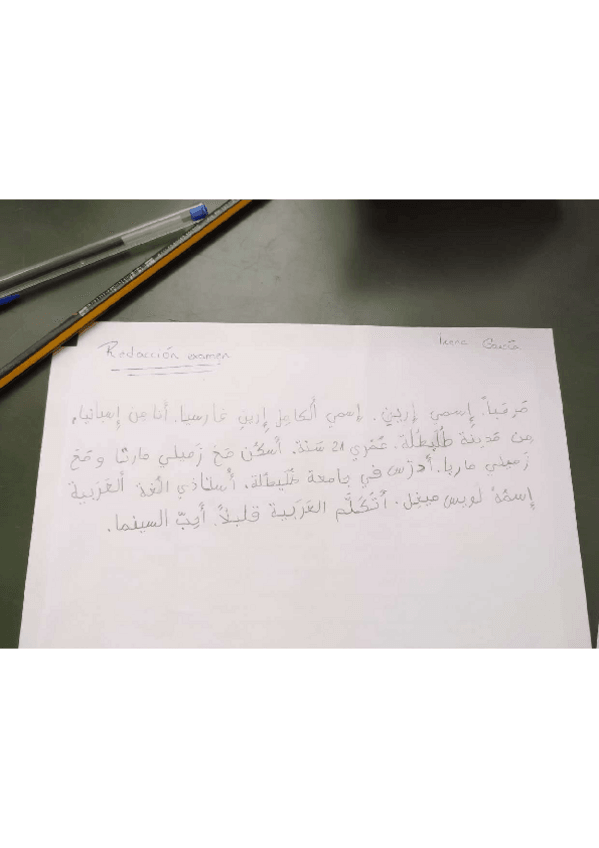 Redacción examen
Irene García
مرحباً. إسمي إرين. إسمي ألكامل إرين غارسيا. أنا من إسبانيا،
من مدينة طُلَيطُلَة. عُمْري 21 سَنة. أسكُن مَع زَميلي مارتا و مَعَ
زَميلي ماريا. أدرُس في جامعة طُلَيطُلة. أُستاذي الُّغة الْعَرَبية
إسمُهُ لويس ميغل. أتَكَلَّم العَرَبية قليلاً. أُحِبّ السينما.